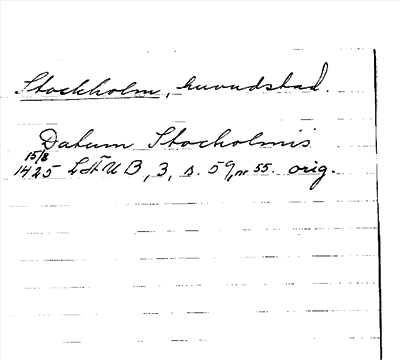 Stockholm, huvudstad.
Datum Stocholmis
15/8
1425 LÅUB, 3, s. 59, nr 55. orig.